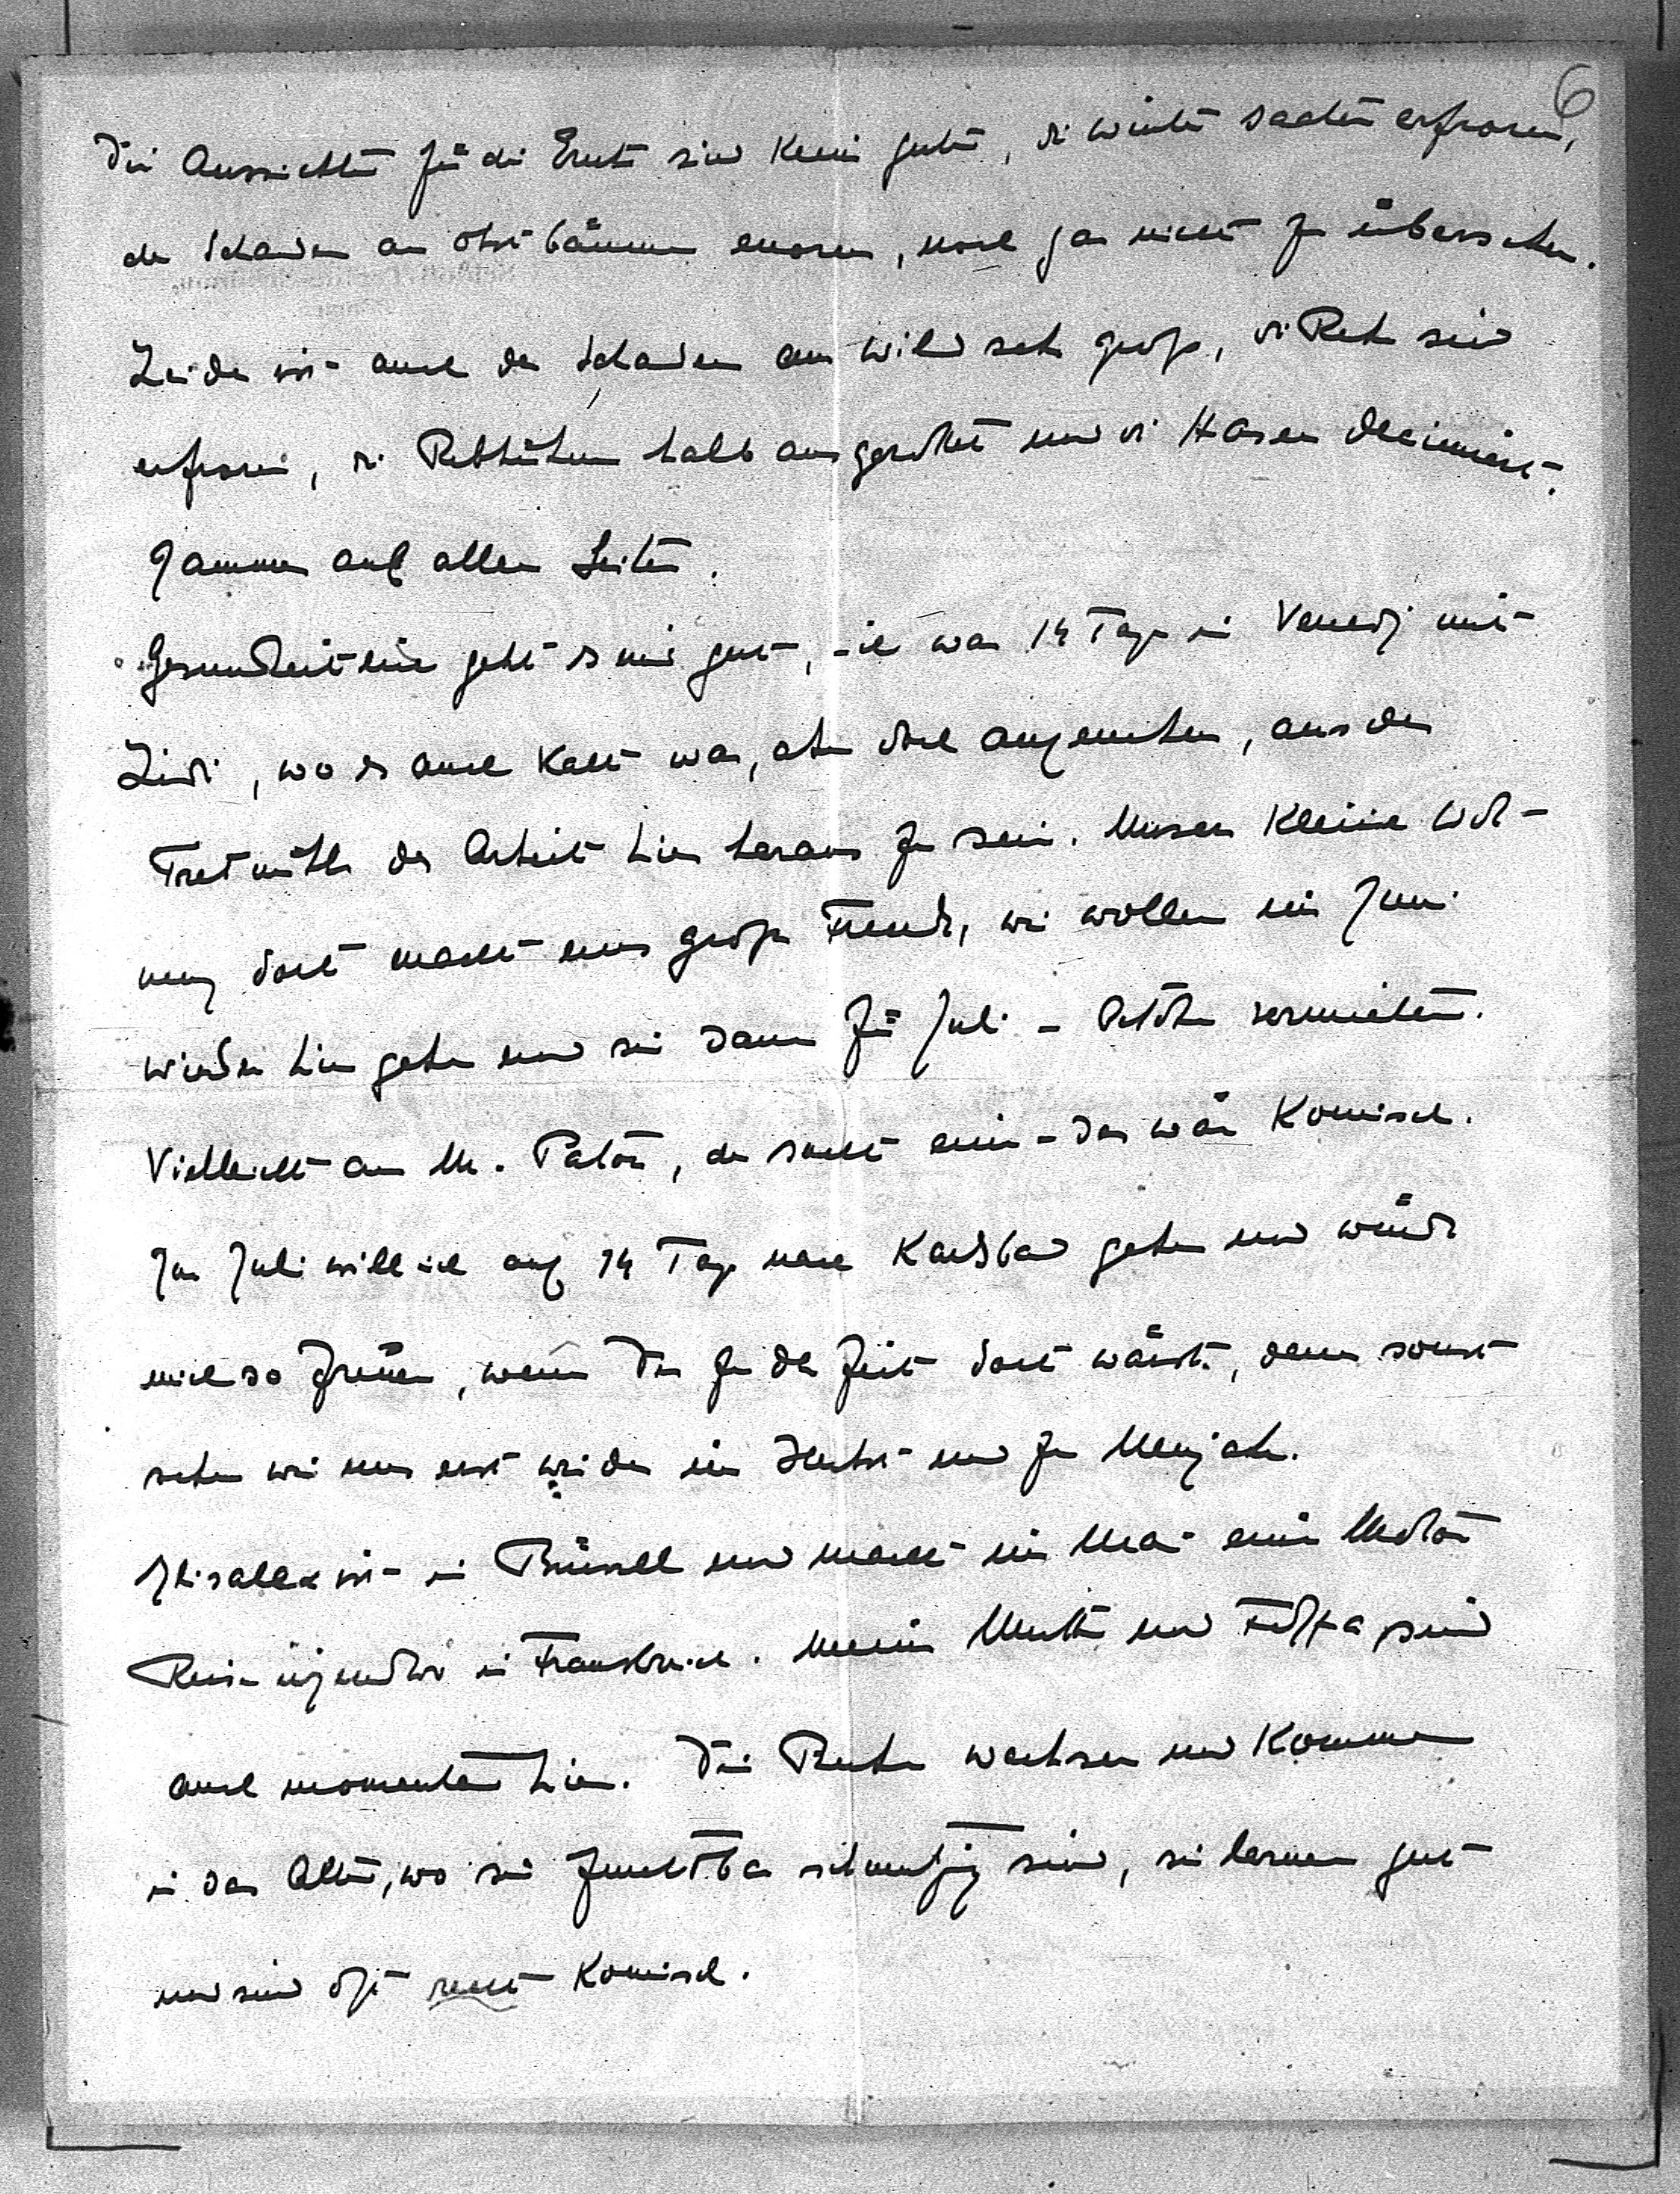 6
Die Aussichten für die Ernte sind keine guten, die Wintersaaten erfroren,
der Schaden an Obstbäumen enorm, noch gar nicht zu übersehen.
Leider ist auch der Schaden am Wild sehr gross, die Rehe sind
erfroren, die Rebhühner halb ausgerottet und die Hasen decimiert.
Jammer auf allen Seiten.
Gesundheitlich geht es mir gut, – ich war 14 Tage in Venedig mit
Lidi, wo es auch kalt war, aber doch angenehm, aus der
Tretmühle der Arbeit hier heraus zu sein. Unsere kleine Woh-
nung dort macht uns grosse Freude, wir wollen im Juni
wieder hingehen und sie dann für Juli – Oktober vermieten.
Vielleicht an M. Paton, der sucht eine – das wäre komisch.
Im Juli will ich auf 14 Tage nach Karlsbad gehen und würde
mich so freuen, wenn Du zu der Zeit dort wärst, denn sonst
sehen wir uns erst wieder im Herbst und zu Neujahr.
ist in Brüssel und macht im Mai eine Motor
Reise irgendwo in Frankreich. Meine Mutter und sind
auch momentan hier. Die Buben wachsen und kommen
in das Alter, wo sie furchtbar schmutzig sind, sie lernen gut
und sind oft recht komisch.